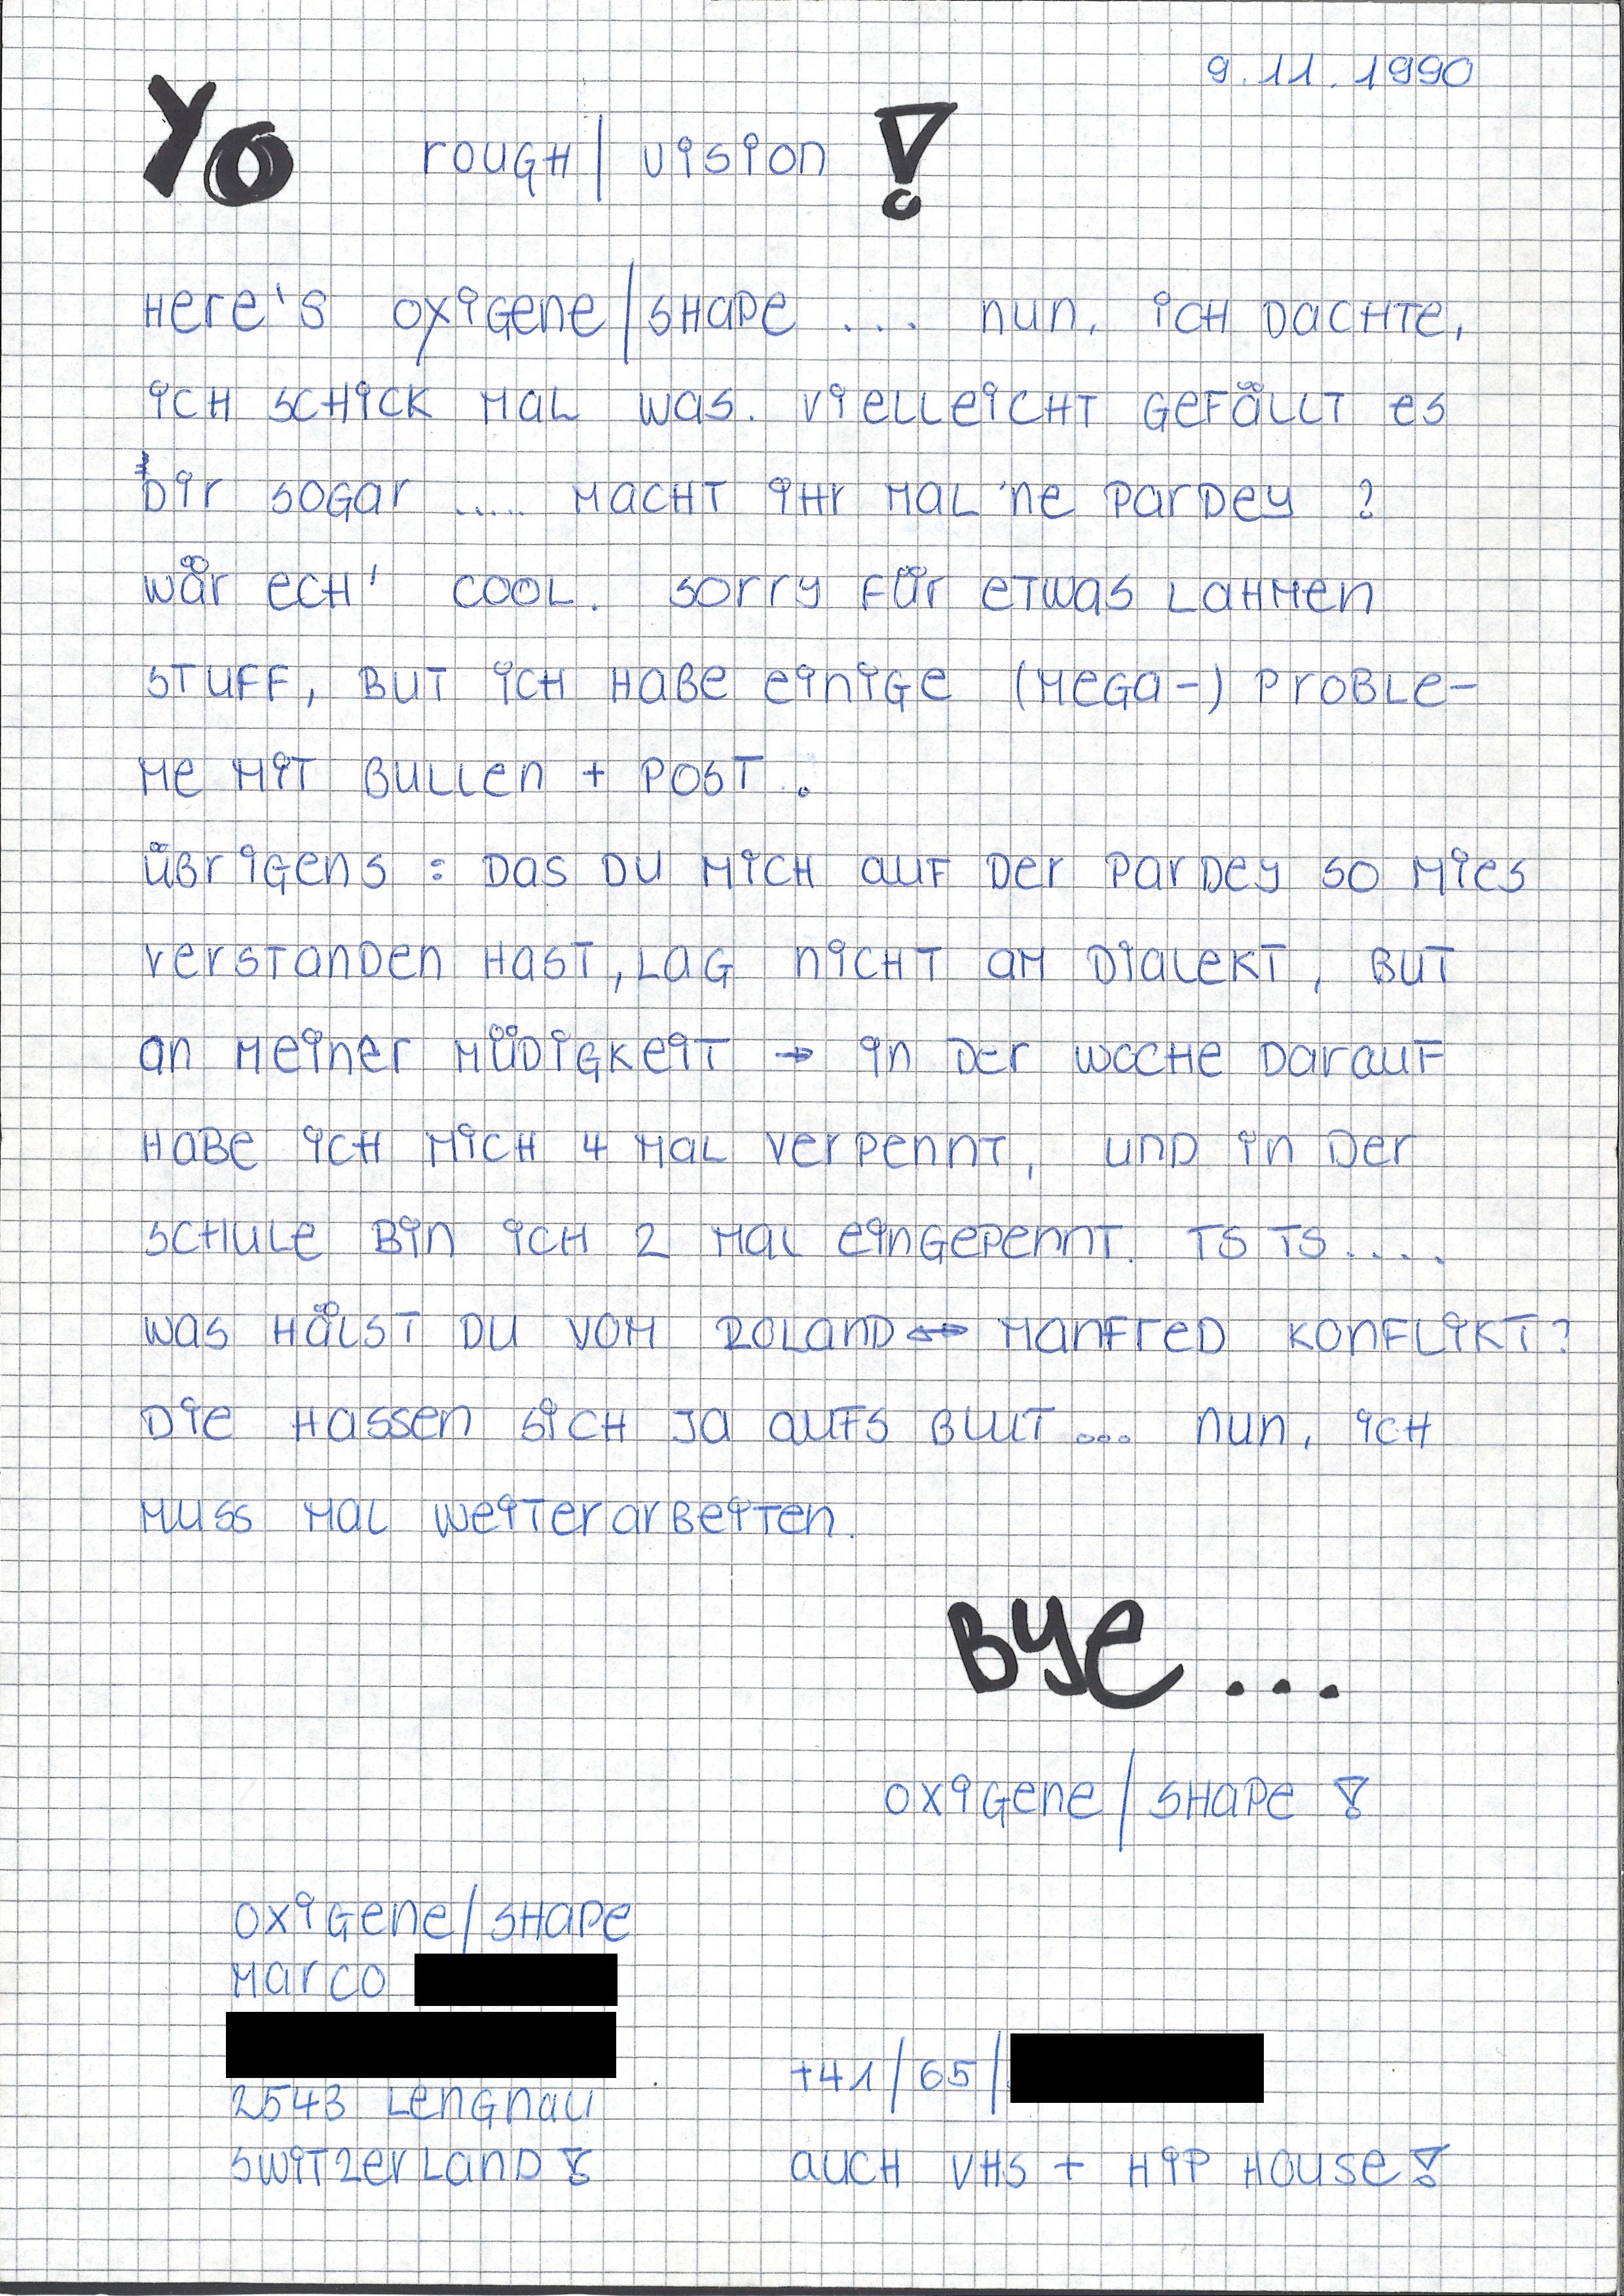 9.11.1990
YO rough/vision!
Here's oxigene/shape ... nun, ich dachte,
ich schick mal was. Vielleicht gefällt es
Dir sogar ..... macht ihr mal 'ne pardey ?
wär ech' cool. Sorry für etwas lahmen
stuff, but ich habe einige (mega-) proble-
me mit Bullen + Post.
übrigens : das du mich auf der pardey so mies
verstanden hast, lag nicht am dialekt, but
an meiner müdigkeit → in der woche darauf
habe ich mich 4 mal verpennt, und in der
schule bin ich 2 mal eingepennt. Ts Ts....
was hälst du vom Roland ↔ Manfred konflikt?
Die hassen sich ja aufs Blut ... nun, ich
muss mal weiterarbeiten.
Bye ...
oxigene/shape !
oxigene/shape
Marco
2543 Lengnau
+41/65/
Switzerland!
auch VHS + Hip House!